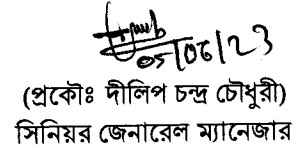 05/06/23
(প্রকৌঃ দীলিপ চন্দ্র চৌধুরী)
সিনিয়র জেনারেল ম্যানেজার